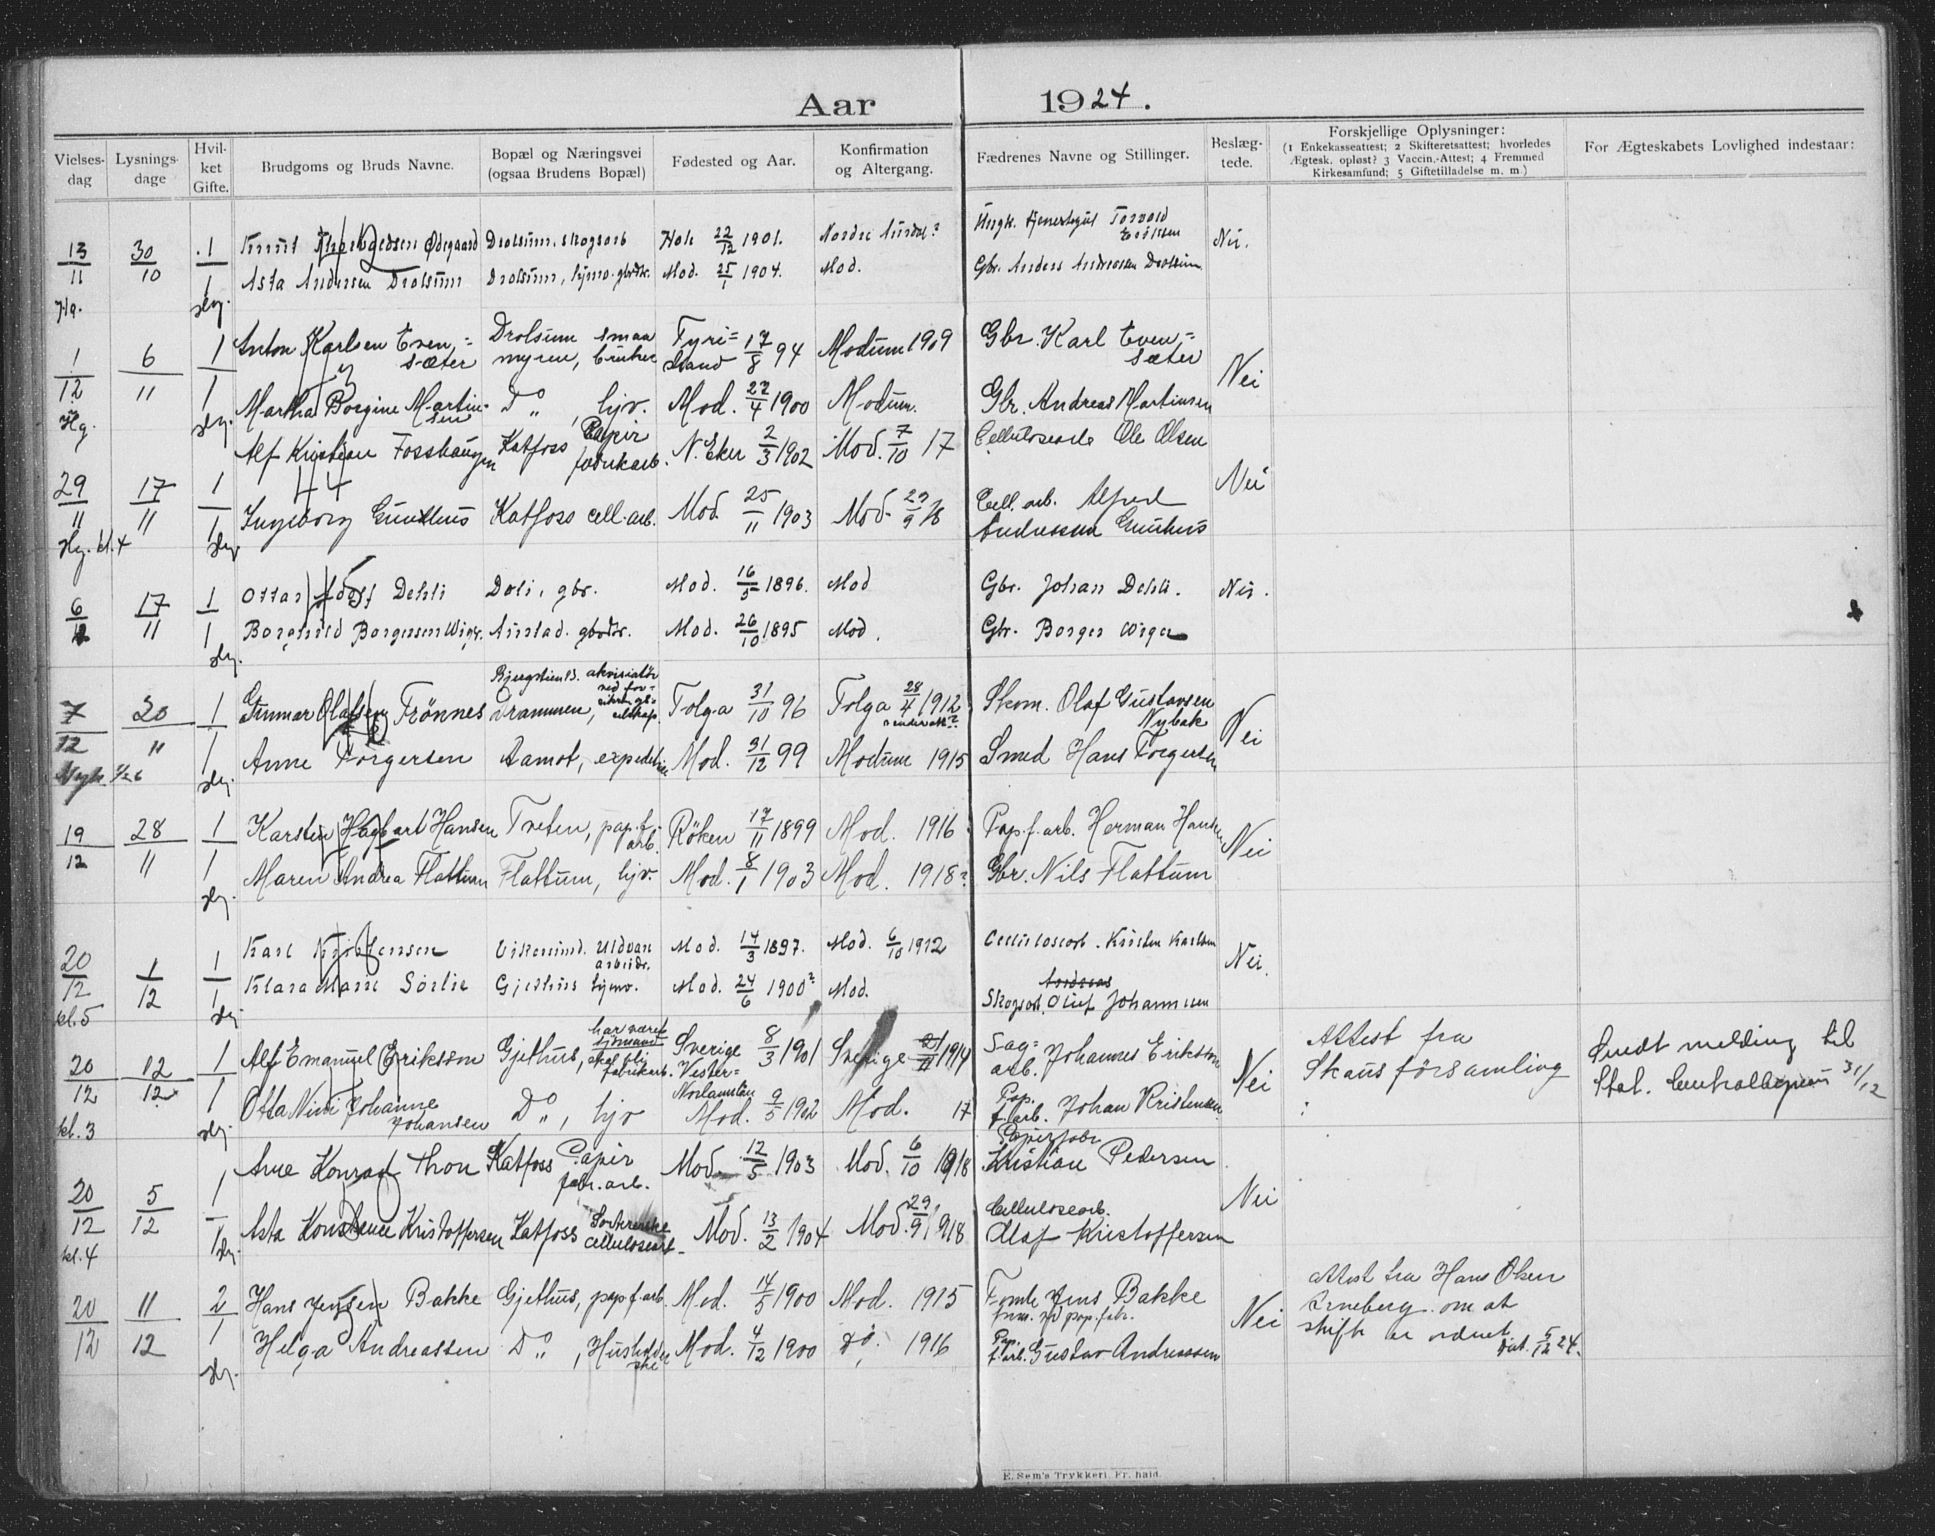 Aar 1924.
Vielses-dag | Lysnings-dage | Hvil-ket Gifte. | Brudgoms og Bruds Navne. | Bopæl og Næringsvei (ogsaa Brudens Bopæl) | Fødested og Aar. | Konfirmation og Altergang. | Fædrenes Navne og Stillinger. | Beslæg-tede. | Forskjellige Oplysninger: (1 Enkekasseattest; 2 Skifteretsattest; hvorledes Ægtesk. opløst? 3 Vaccin.-Attest; 4 Fremmed Kirkesamfund; 5 Giftetilladelse m. m.) | For Ægteskabets Lovlighed indestaar:
13/11 30/10 1 Knut Ødegaard Drolsum, skogsarb Hol 22/12 1901. Nordre Aurdal? Torvald Eriksen Nei.
1 Asta Andersen Drolsum Drolsum, hjmv. gbrdtr. Mod. 25/1 1904. Mod. Gbr. Anders Andreasen Drolsum
1/12 6/11 1 Anton Karlsen Even-sæter Drolsum smaa myren, bruker Fyri=strand 17/8 94 Modum 1909 Gbr. Karl Even-sæter Nei
1 Martha Borgine Martin-sen Do " , hjv. Mod. 22/4 1900 Modum. Gbr. Andreas Martinsen
Hg.
29/11 17/11 1 Alf Kristian Fosshaugen Katfoss Papir fabrikarb. N. Eker 2/3 1902 Mod. 7/10 17 Cellulosearb Ole Olsen Nei
1 Ingeborg Gunthus Katfoss cell. arb. Mod. 25/11 1903 Mod. 29/9 18 Cell. arb. Alfred Andreassen Gunthus
kl. 4
6/12 17/11 1 Ottar Adolf Dehli Doli, gbr. Mod. 16/5 1896. Mod Gbr. Johan Dehli. Nei.
1 Borghild Borgersen Wiger. Aurstad. gbrdtr. Mod. 26/10 1895 Mod. Gbr. Borger Wiger
7/12 20/11 1 Gunnar Olafsen Frönnes Bjergstien 13. akvisitör ved for-sikringssel-skap. Drammen, Tolga 31/10 96 Tolga 28/4 1912 Skom. Olaf Gustavsen Nybak Nei
1 Anne Torgersen Aamot, expeditrice Mod. 31/12 99 Modum 1915 Smed Hans Torgersen
19/12 28/11 1 Karsten Hagbart Hansen Tveten, pap.f. arb. Röken 17/11 1899 Mod. 1916 Pap.f.arb. Herman Hansen Nei
1 Maren Andrea Flattum Flattum, hjv. Mod. 8/1 1903 Mod. 1918? Gbr. Nils Flattum
20/12 1/12 1 Karl Kristensen Vikersund. Uldvar. arbeidr. Mod. 14/3 1897. Mod. 6/10 1912 Cellulosearb. Kristen Karlsen Nei.
1 Klara Marie Sörlie Gjethus hjmv. Mod. 24/6 1900? Mod. Andreas Skogsarb. Oluf Johannesen
kl. 5
20/12 12/12 1 Alf Emanuel Eriksson Gjethus, har været sjömand skal bli fabrikarb. Sverige 8/3 1901 Vester=Norlandslän Sverige 1914 Sag=arb. Johannes Eriksson Nei Attest fra Skansförsamling Sendt melding til Stat. Centralbyraa 31/12
1 Otta Nini Johanne Johansen Do " , hjv Mod. 9/5 1902 Mod. 17 Pap. f.arb. Johan Kristensen
kl. 3
20/12 5/12 1 Arne Konrad Thon Katfoss Papir fabr. arb. Mod. 12/5 1903 Mod. 6/10 1918 Papirfabr Kristian Pedersen Nei
1 Asta Konstance Kristoffersen Katfoss Sorterske cellulosearb. Mod. 13/2 1904 Mod. 29/9 1918 Cellulosearb. Olaf Kristoffersen
kl. 4
20/12 11/12 2 Hans Jensen Bakke Gjethus, pap.f.arb. Mod. 14/5 1900 Mod. 1915 Fomh. Jens Bakke form. v/d pap. fabr. Nei Attest fra Hans Olsen Arneberg om at skifte er ordnet dat. 5/12 24.
1 Helga Andreassen Do " , Husholderske Mod. 4/12 1900 Do. 1916 Pap. f.arb. Gustav Andreassen
E. Sem's Trykkeri, Fr. hald.